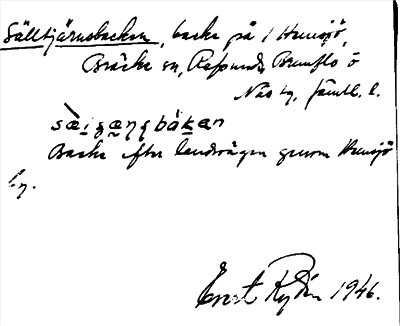 Sälltjärnsbacken, backe på 1 Hunsjö,
Bräcke sn, Refsunds, Brunflo o
Näs tg, Jämtl. l.
Backe efter landsvägen genom Hunsjö
by.
Ernst Rydén 1946.